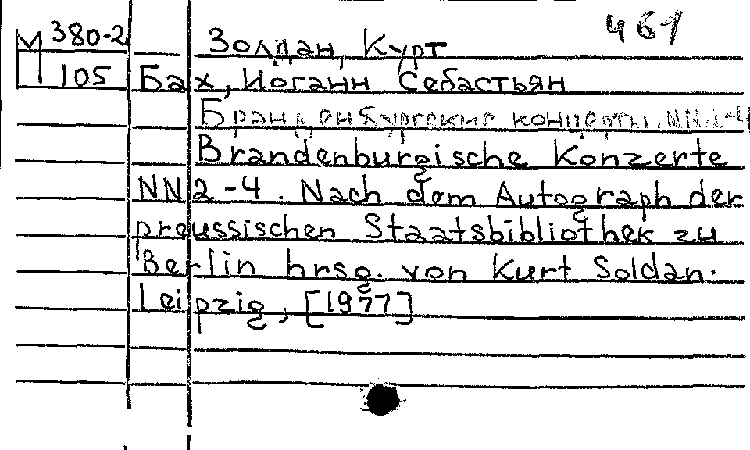 461
М 380-2 Золдан, Курт
105 Бах, Иоганн Себастьян
Бранденбургские концерты, NN 2-4
Brandenburgische Konzerte
NN 2-4. Nach dem Autograph der
preussischen Staatsbibliothek zu
Berlin hrsg. von Kurt Soldan.
Leipzig, [1977]